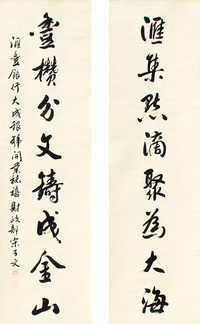 匯集點滴聚為大海
壹攢分文鑄成金山
匯壹銀行大成銀號開業誌禧財政部宋子文